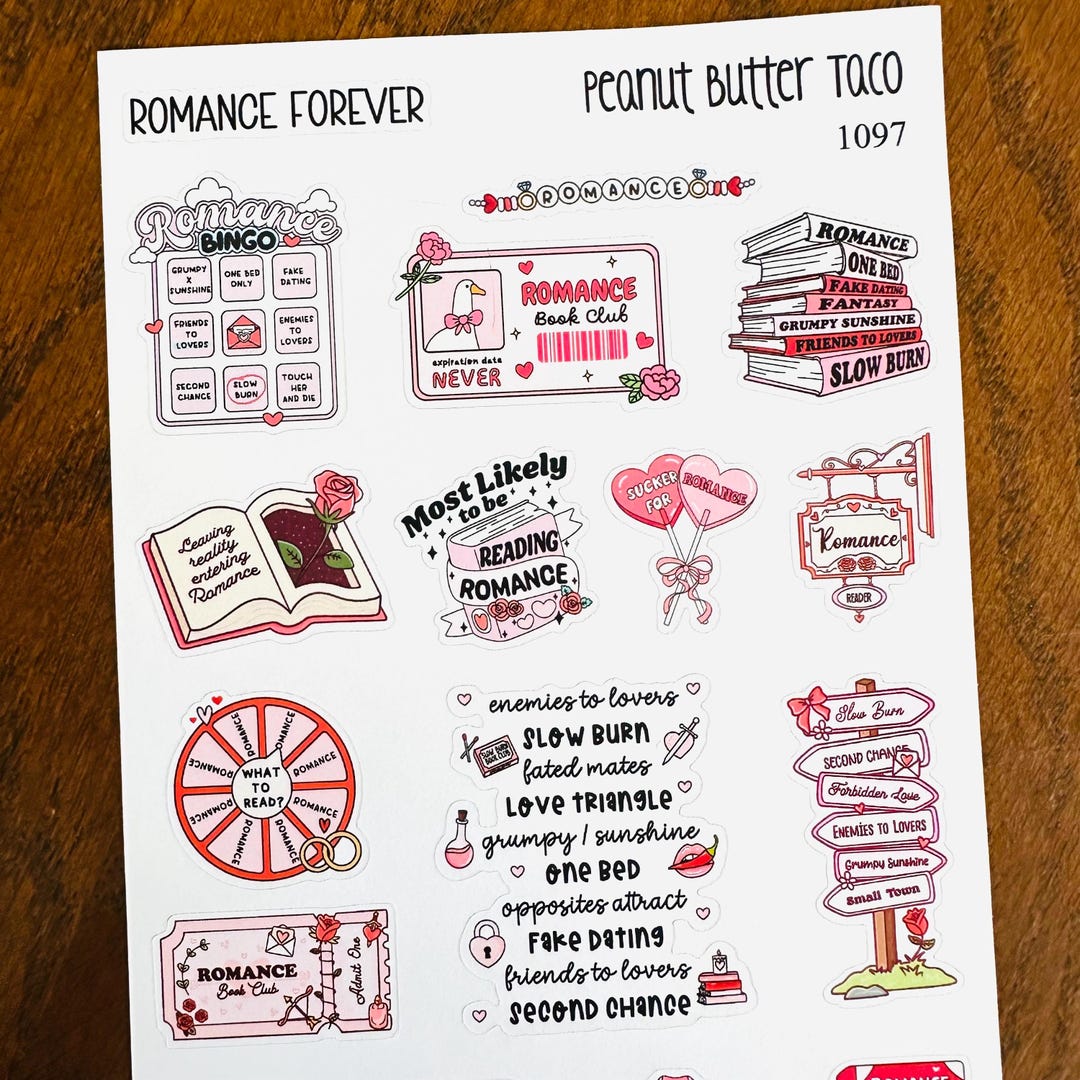 ROMANCE FOREVER
Peanut Butter Taco
1097
ROMANCE
Romance
BINGO
GRUMPY
X
SUNSHINE
ONE BED
ONLY
FAKE
DATING
FRIENDS
TO
LOVERS
ENEMIES
TO
LOVERS
SECOND
CHANCE
SLOW
BURN
TOUCH
HER
AND DIE
ROMANCE
Book Club
expiration date
NEVER
ROMANCE
ONE BED
FAKE DATING
FANTASY
GRUMPY SUNSHINE
FRIENDS TO LOVERS
SLOW BURN
Leaving
reality
entering
Romance
Most Likely
to be
READING
ROMANCE
SUCKER
FOR
ROMANCE
Romance
READER
WHAT
TO
READ?
ROMANCE
ROMANCE
ROMANCE
ROMANCE
ROMANCE
ROMANCE
ROMANCE
ROMANCE
ROMANCE
ROMANCE
enemies to lovers
SLOW BURN
SLOW BURN
BOOK CLUB
fated mates
LOVE TRIANGLE
grumpy / sunshine
ONE BED
opposites attract
FAKE DATING
friends to lovers
SECOND CHANCE
Slow Burn
SECOND CHANCE
Forbidden Love
ENEMIES TO LOVERS
Grumpy Sunshine
Small Town
ROMANCE
Book Club
Admit One
ROMANCE